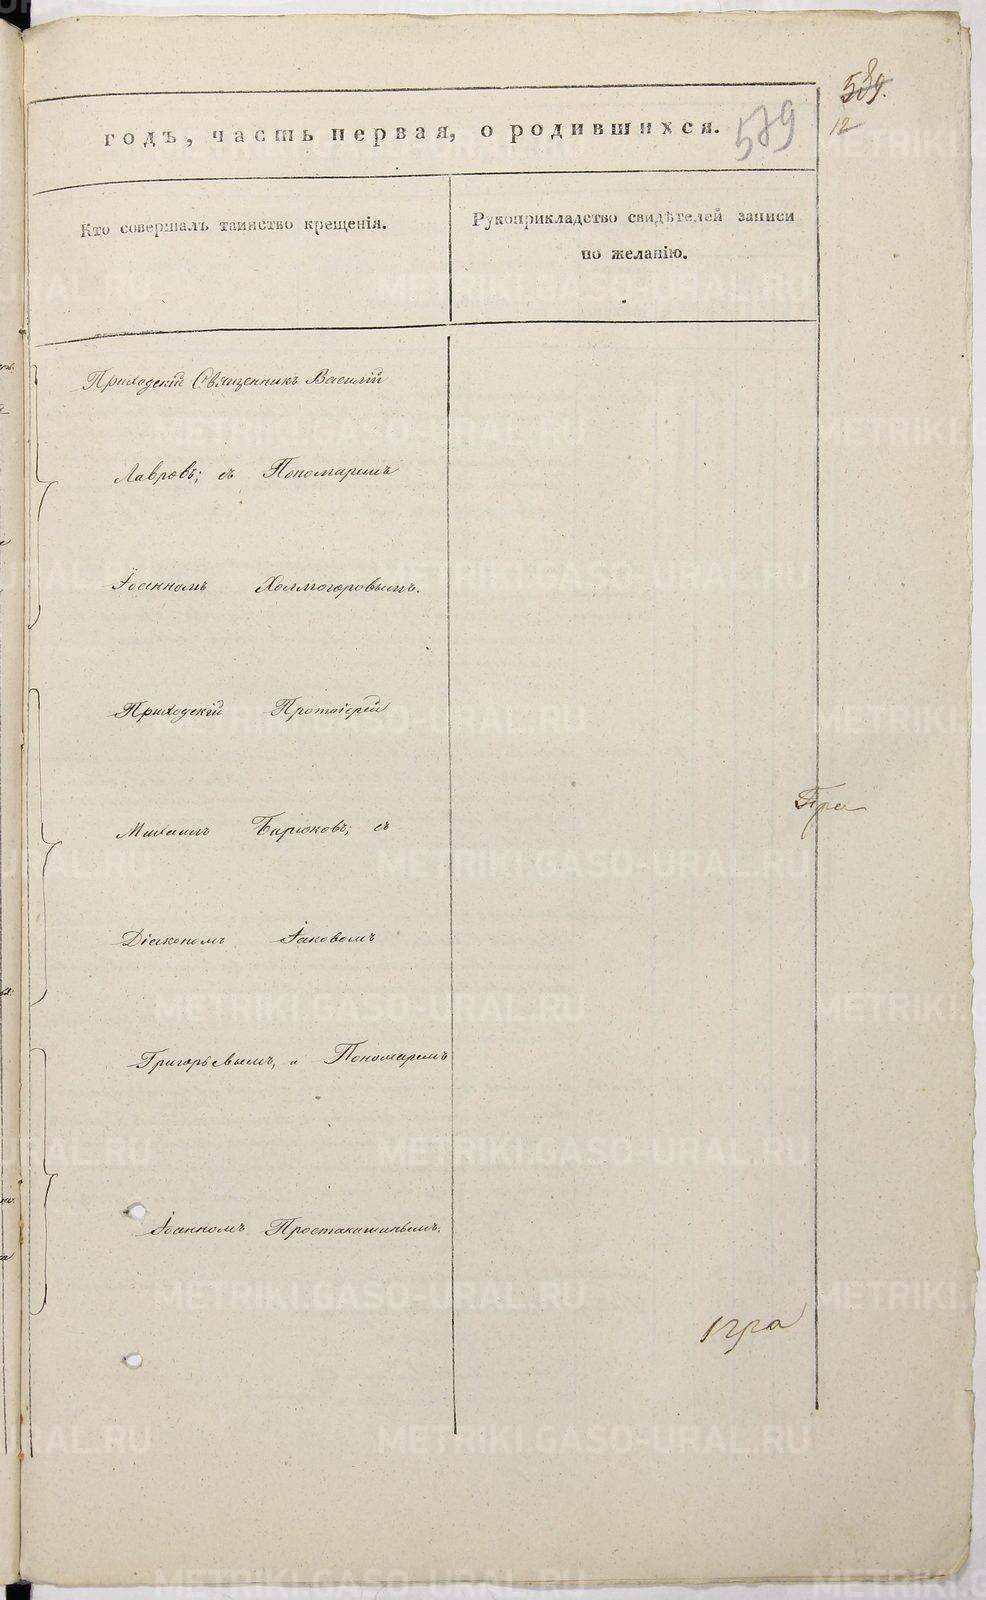 589.
12
годъ, часть первая, о родившихся.
579
Кто совершалъ таинство крещенія.
Рукоприкладство свидѣтелей записи
по желанію.
Приходскій Священникъ Василій
Лавровъ; съ Пономаремъ
Іоанномъ Холмогоровымъ.
Приходскій Протоіерей
Михаилъ Бирюковъ; съ
Діакономъ Іаковомъ
Григорьевымъ, и Пономаремъ
Іоанномъ Простакишинымъ.
METRIKI.GASO-URAL.RU